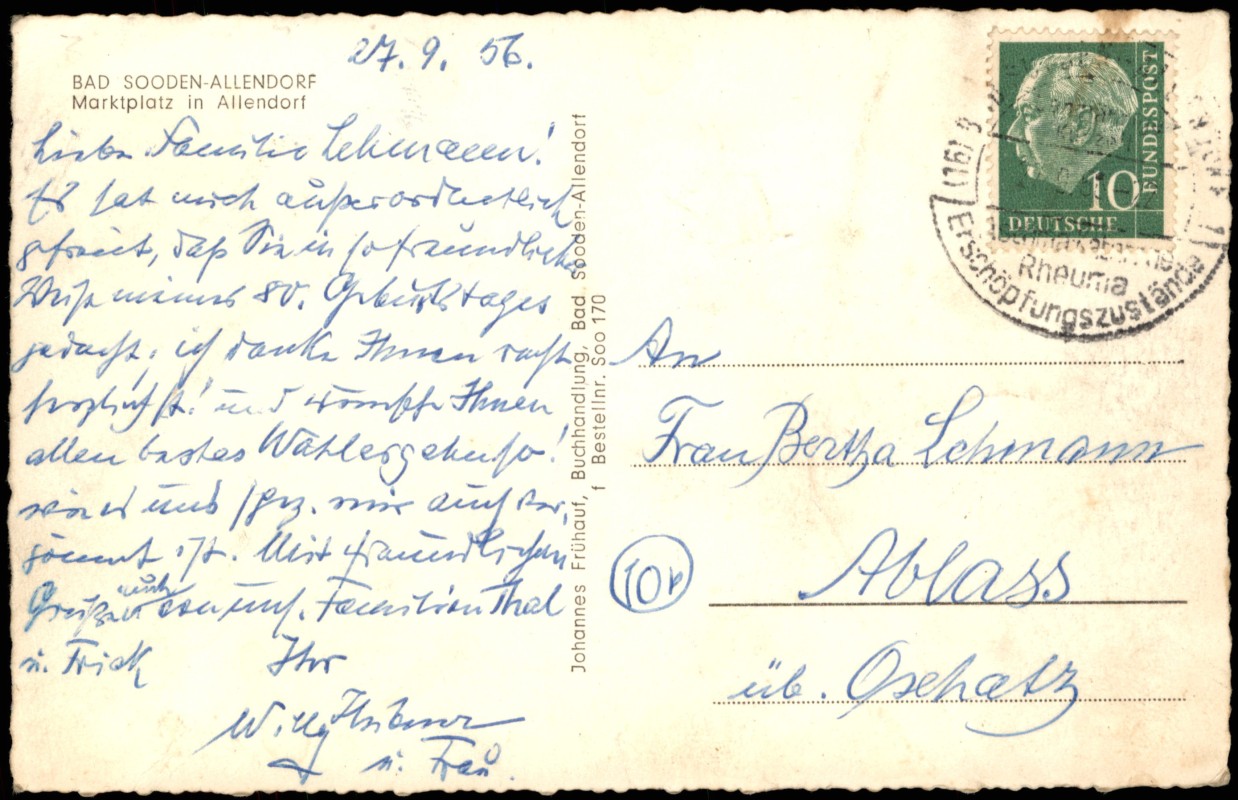 27. 9. 56.
BAD SOODEN-ALLENDORF
Marktplatz in Allendorf
Liebe Familie Lehmann!
Es hat mich außerordentlich
gefreut, daß Sie in so freundlicher
Weise meines 80. Geburtstages
gedacht; ich danke Ihnen recht
herzlichst! und wünsche Ihnen
allen bestes Wohlergehen, so!
wie es uns spez. mir auch ver-
gönnt ist. Mit freundlichen
Grüßen auch von uns. Familien Thal
u. Frick Ihr
Willy
u. Frau.
Johannes Frühauf, Buchhandlung, Bad Sooden-Allendorf
f Bestellnr. Soo 170
DEUTSCHE
BUNDESPOST
10
(16)
Rheuma
Erschöpfungszustände
An
Frau Bertha Lehmann
Ablass
üb. Oschatz